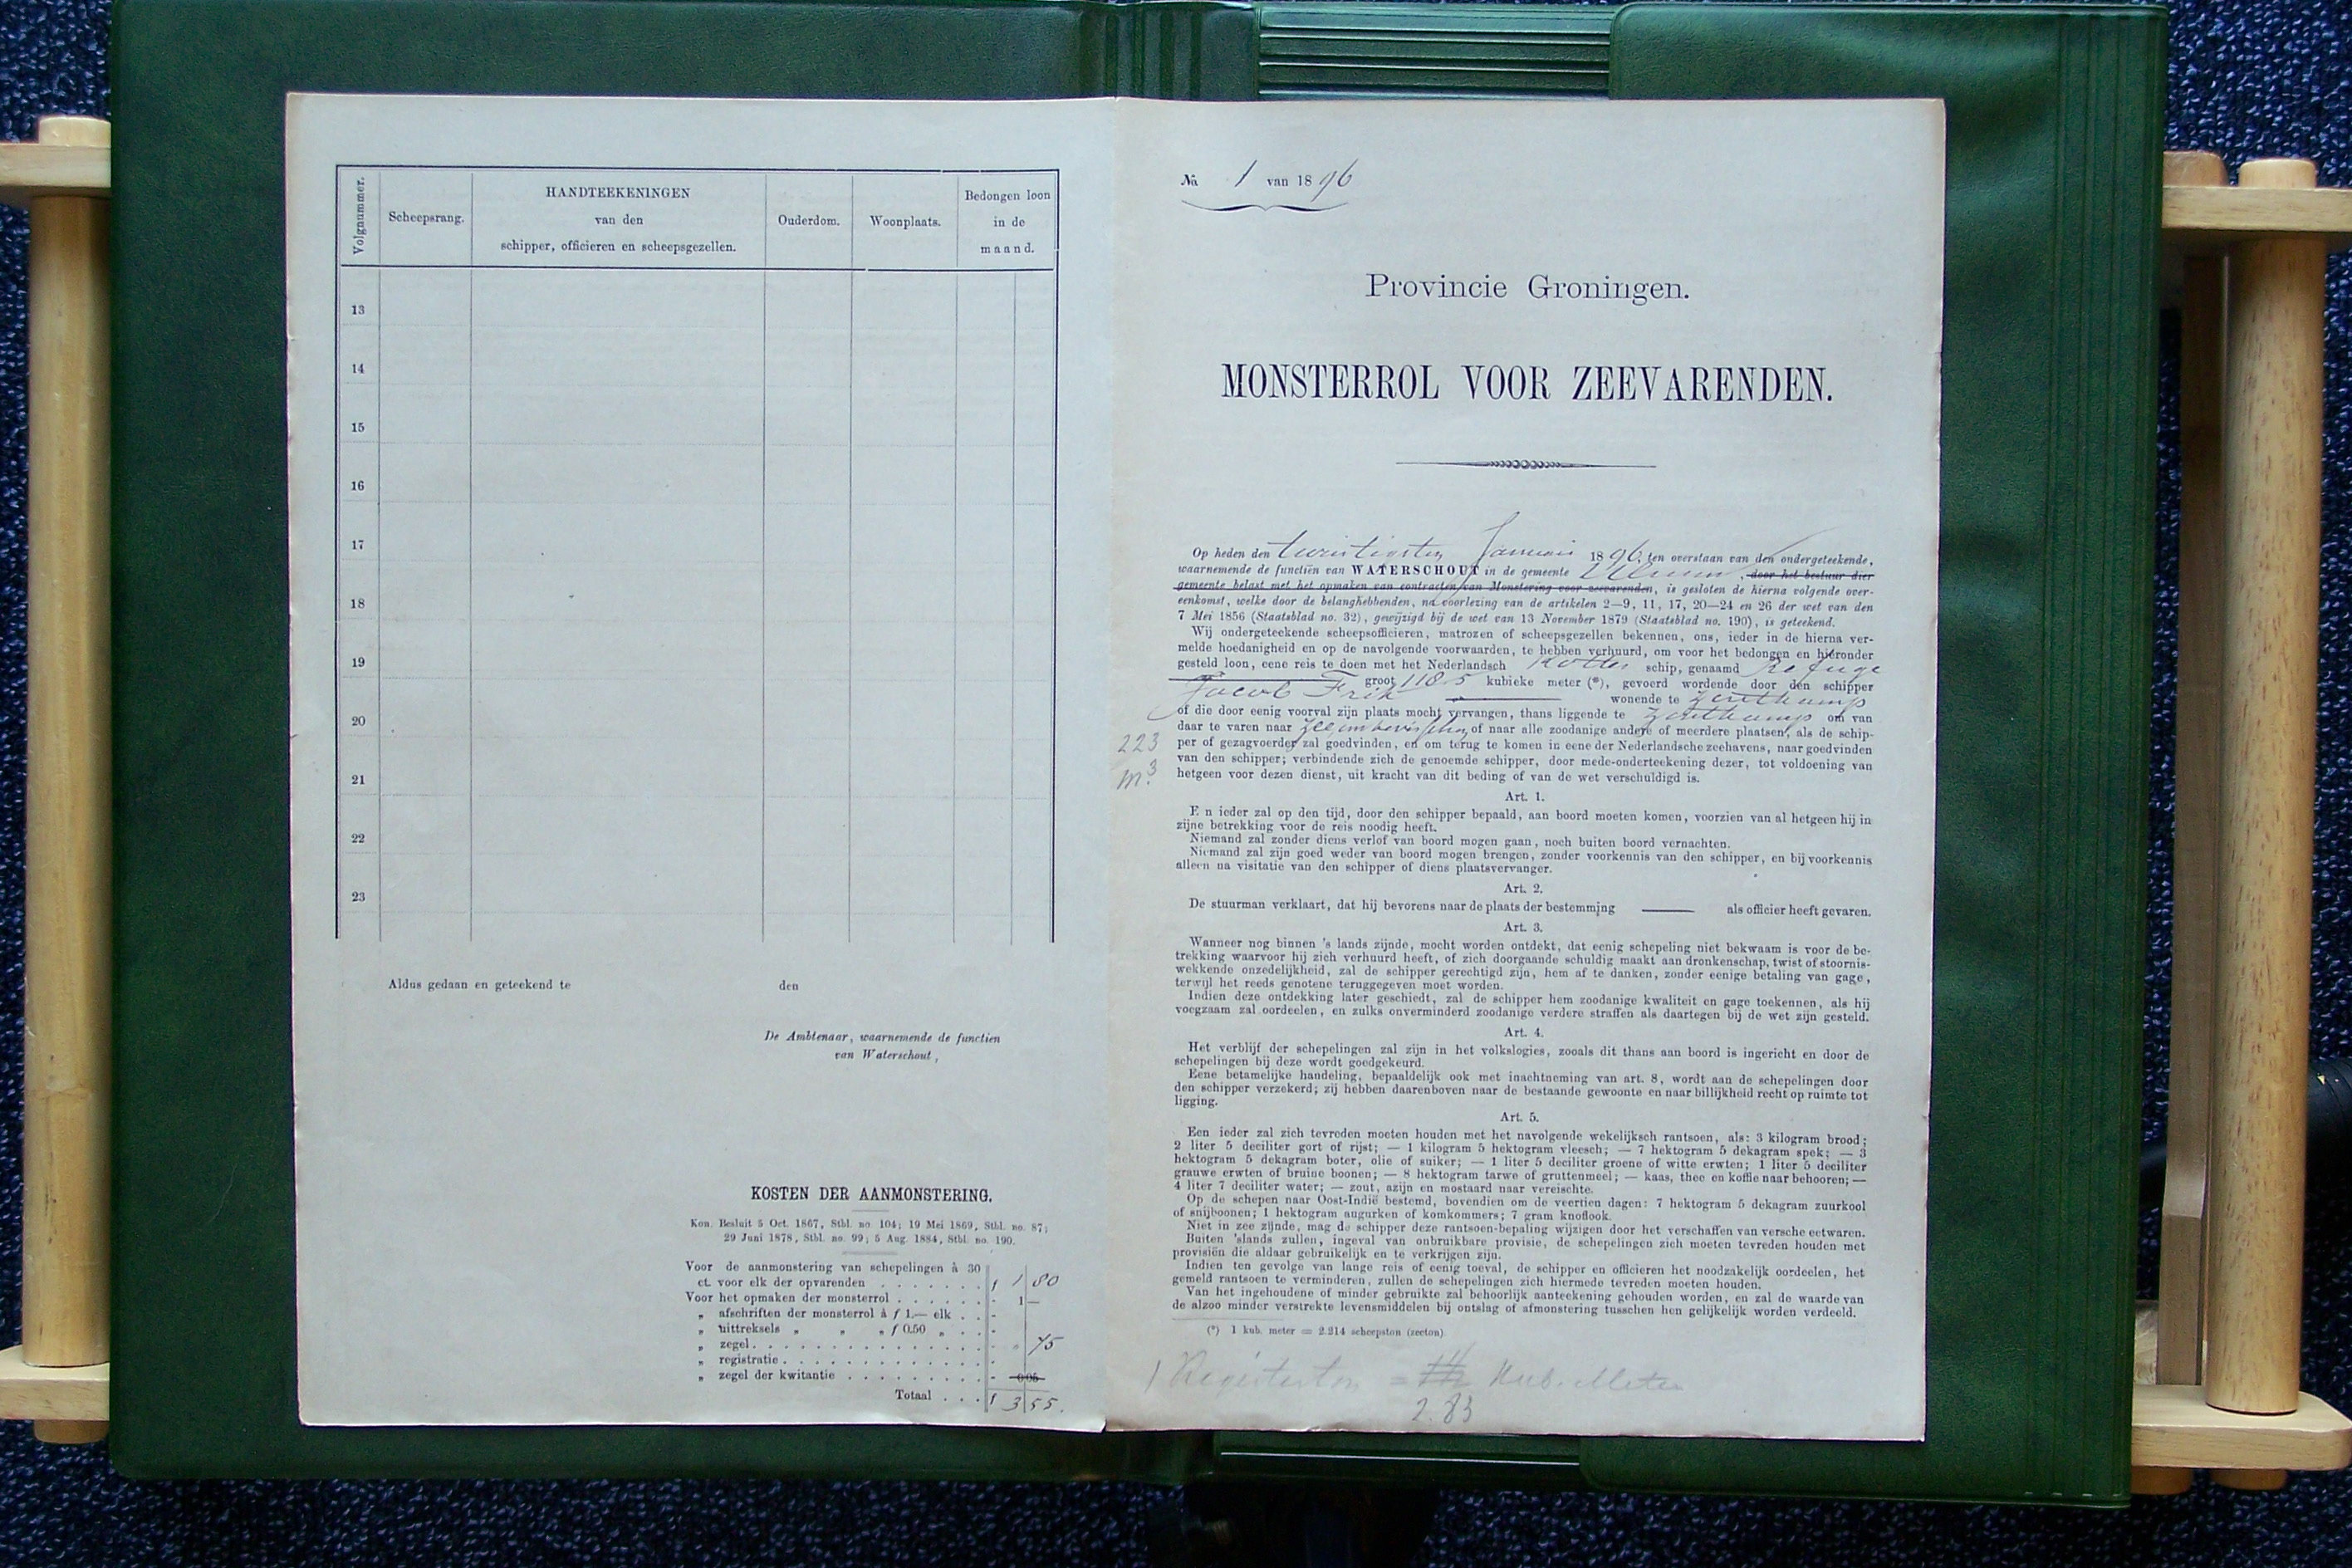 Volgnummer.
Scheepsrang.
HANDTEEKENINGEN
van den
schipper, officieren en scheepsgezellen.
Ouderdom.
Woonplaats.
Bedongen loon
in de
maand.
13
14
15
16
17
18
19
20
21
22
23
Aldus gedaan en geteekend te den
De Ambtenaar, waarnemende de functien
van Waterschout,
KOSTEN DER AANMONSTERING.
Kon. Besluit 5 Oct. 1867, Stbl. no 104; 19 Mei 1869, Stbl. no. 87;
29 Juni 1878, Stbl. no. 99; 5 Aug. 1884, Stbl. no. 190.
Voor de aanmonstering van schepelingen à 30
ct. voor elk der opvarenden . . . . . . . f 1 80
Voor het opmaken der monsterrol . . . . . . - 1 —
„ afschriften der monsterrol à f 1.— elk . . -
„ uittreksels „ „ „ f 0.50 „ . . -
„ zegel . . . . . . . . . . . . . . . - „ 75
„ registratie . . . . . . . . . . . . . -
„ zegel der kwitantie . . . . . . . . . - 0 05
Totaal . . . f 3 55.
No 1 van 1896
Provincie Groningen.
MONSTERROL VOOR ZEEVARENDEN.
Op heden den twintigsten Januari 1896, ten overstaan van den ondergeteekende,
waarnemende de functiën van WATERSCHOUT in de gemeente Ulrum, door het bestuur dier
gemeente belast met het opmaken van contracten van Monstering voor zeevarenden, is gesloten de hierna volgende over-
eenkomst, welke door de belanghebbenden, na voorlezing van de artikelen 2—9, 11, 17, 20—24 en 26 der wet van den
7 Mei 1856 (Staatsblad no. 32), gewijzigd bij de wet van 13 November 1879 (Staatsblad no. 190), is geteekend.
Wij ondergeteekende scheepsofficieren, matrozen of scheepsgezellen bekennen, ons, ieder in de hierna ver-
melde hoedanigheid en op de navolgende voorwaarden, te hebben verhuurd, om voor het bedongen en hieronder
gesteld loon, eene reis te doen met het Nederlandsch Kotter schip, genaamd Refuge
groot 118.5 kubieke meter (*), gevoerd wordende door den schipper
Jacob Frik wonende te Zoutkamp
of die door eenig voorval zijn plaats mocht vervangen, thans liggende te Zoutkamp om van
daar te varen naar Zee ... of naar alle zoodanige andere of meerdere plaatsen, als de schip-
per of gezagvoerder zal goedvinden, en om terug te komen in eene der Nederlandsche zeehavens, naar goedvinden
van den schipper; verbindende zich de genoemde schipper, door mede-onderteekening dezer, tot voldoening van
hetgeen voor dezen dienst, uit kracht van dit beding of van de wet verschuldigd is.
223
m3
Art. 1.
E n ieder zal op den tijd, door den schipper bepaald, aan boord moeten komen, voorzien van al hetgeen hij in
zijne betrekking voor de reis noodig heeft.
Niemand zal zonder diens verlof van boord mogen gaan, noch buiten boord vernachten.
Niemand zal zijn goed weder van boord mogen brengen, zonder voorkennis van den schipper, en bij voorkennis
alleen na visitatie van den schipper of diens plaatsvervanger.
Art. 2.
De stuurman verklaart, dat hij bevorens naar de plaats der bestemming —— als officier heeft gevaren.
Art. 3.
Wanneer nog binnen 's lands zijnde, mocht worden ontdekt, dat eenig schepeling niet bekwaam is voor de be-
trekking waarvoor hij zich verhuurd heeft, of zich doorgaande schuldig maakt aan dronkenschap, twist of stoornis-
wekkende onzedelijkheid, zal de schipper gerechtigd zijn, hem af te danken, zonder eenige betaling van gage,
terwijl het reeds genotene teruggegeven moet worden.
Indien deze ontdekking later geschiedt, zal de schipper hem zoodanige kwaliteit en gage toekennen, als hij
voegzaam zal oordeelen, en zulks onverminderd zoodanige verdere straffen als daartegen bij de wet zijn gesteld.
Art. 4.
Het verblijf der schepelingen zal zijn in het volkslogies, zooals dit thans aan boord is ingericht en door de
schepelingen bij deze wordt goedgekeurd.
Eene betamelijke handeling, bepaaldelijk ook met inachtneming van art. 8, wordt aan de schepelingen door
den schipper verzekerd; zij hebben daarenboven naar de bestaande gewoonte en naar billijkheid recht op ruimte tot
ligging.
Art. 5.
Een ieder zal zich tevreden moeten houden met het navolgende wekelijksch rantsoen, als: 3 kilogram brood;
2 liter 5 deciliter gort of rijst; — 1 kilogram 5 hektogram vleesch; — 7 hektogram 5 dekagram spek; — 3
hektogram 5 dekagram boter, olie of suiker; — 1 liter 5 deciliter groene of witte erwten; 1 liter 5 deciliter
grauwe erwten of bruine boonen; — 8 hektogram tarwe of gruttenmeel; — kaas, thee en koffie naar behooren; —
4 liter 7 deciliter water; — zout, azijn en mostaard naar vereischte.
Op de schepen naar Oost-Indië bestemd, bovendien om de veertien dagen: 7 hektogram 5 dekagram zuurkool
of snijboonen; 1 hektogram augurken of komkommers; 7 gram knoflook.
Niet in zee zijnde, mag de schipper deze rantsoen-bepaling wijzigen door het verschaffen van versche eetwaren.
Buiten 'slands zullen, ingeval van onbruikbare provisie, de schepelingen zich moeten tevreden houden met
provisiën die aldaar gebruikelijk en te verkrijgen zijn.
Indien ten gevolge van lange reis of eenig toeval, de schipper en officieren het noodzakelijk oordeelen, het
gemeld rantsoen te verminderen, zullen de schepelingen zich hiermede tevreden moeten houden.
Van het ingehoudene of minder gebruikte zal behoorlijk aanteekening gehouden worden, en zal de waarde van
de alzoo minder verstrekte levensmiddelen bij ontslag of afmonstering tusschen hen gelijkelijk worden verdeeld.
(*) 1 kub. meter = 2.214 scheepston (zeeton).
1 Registerton = Kub. Meter
2.83